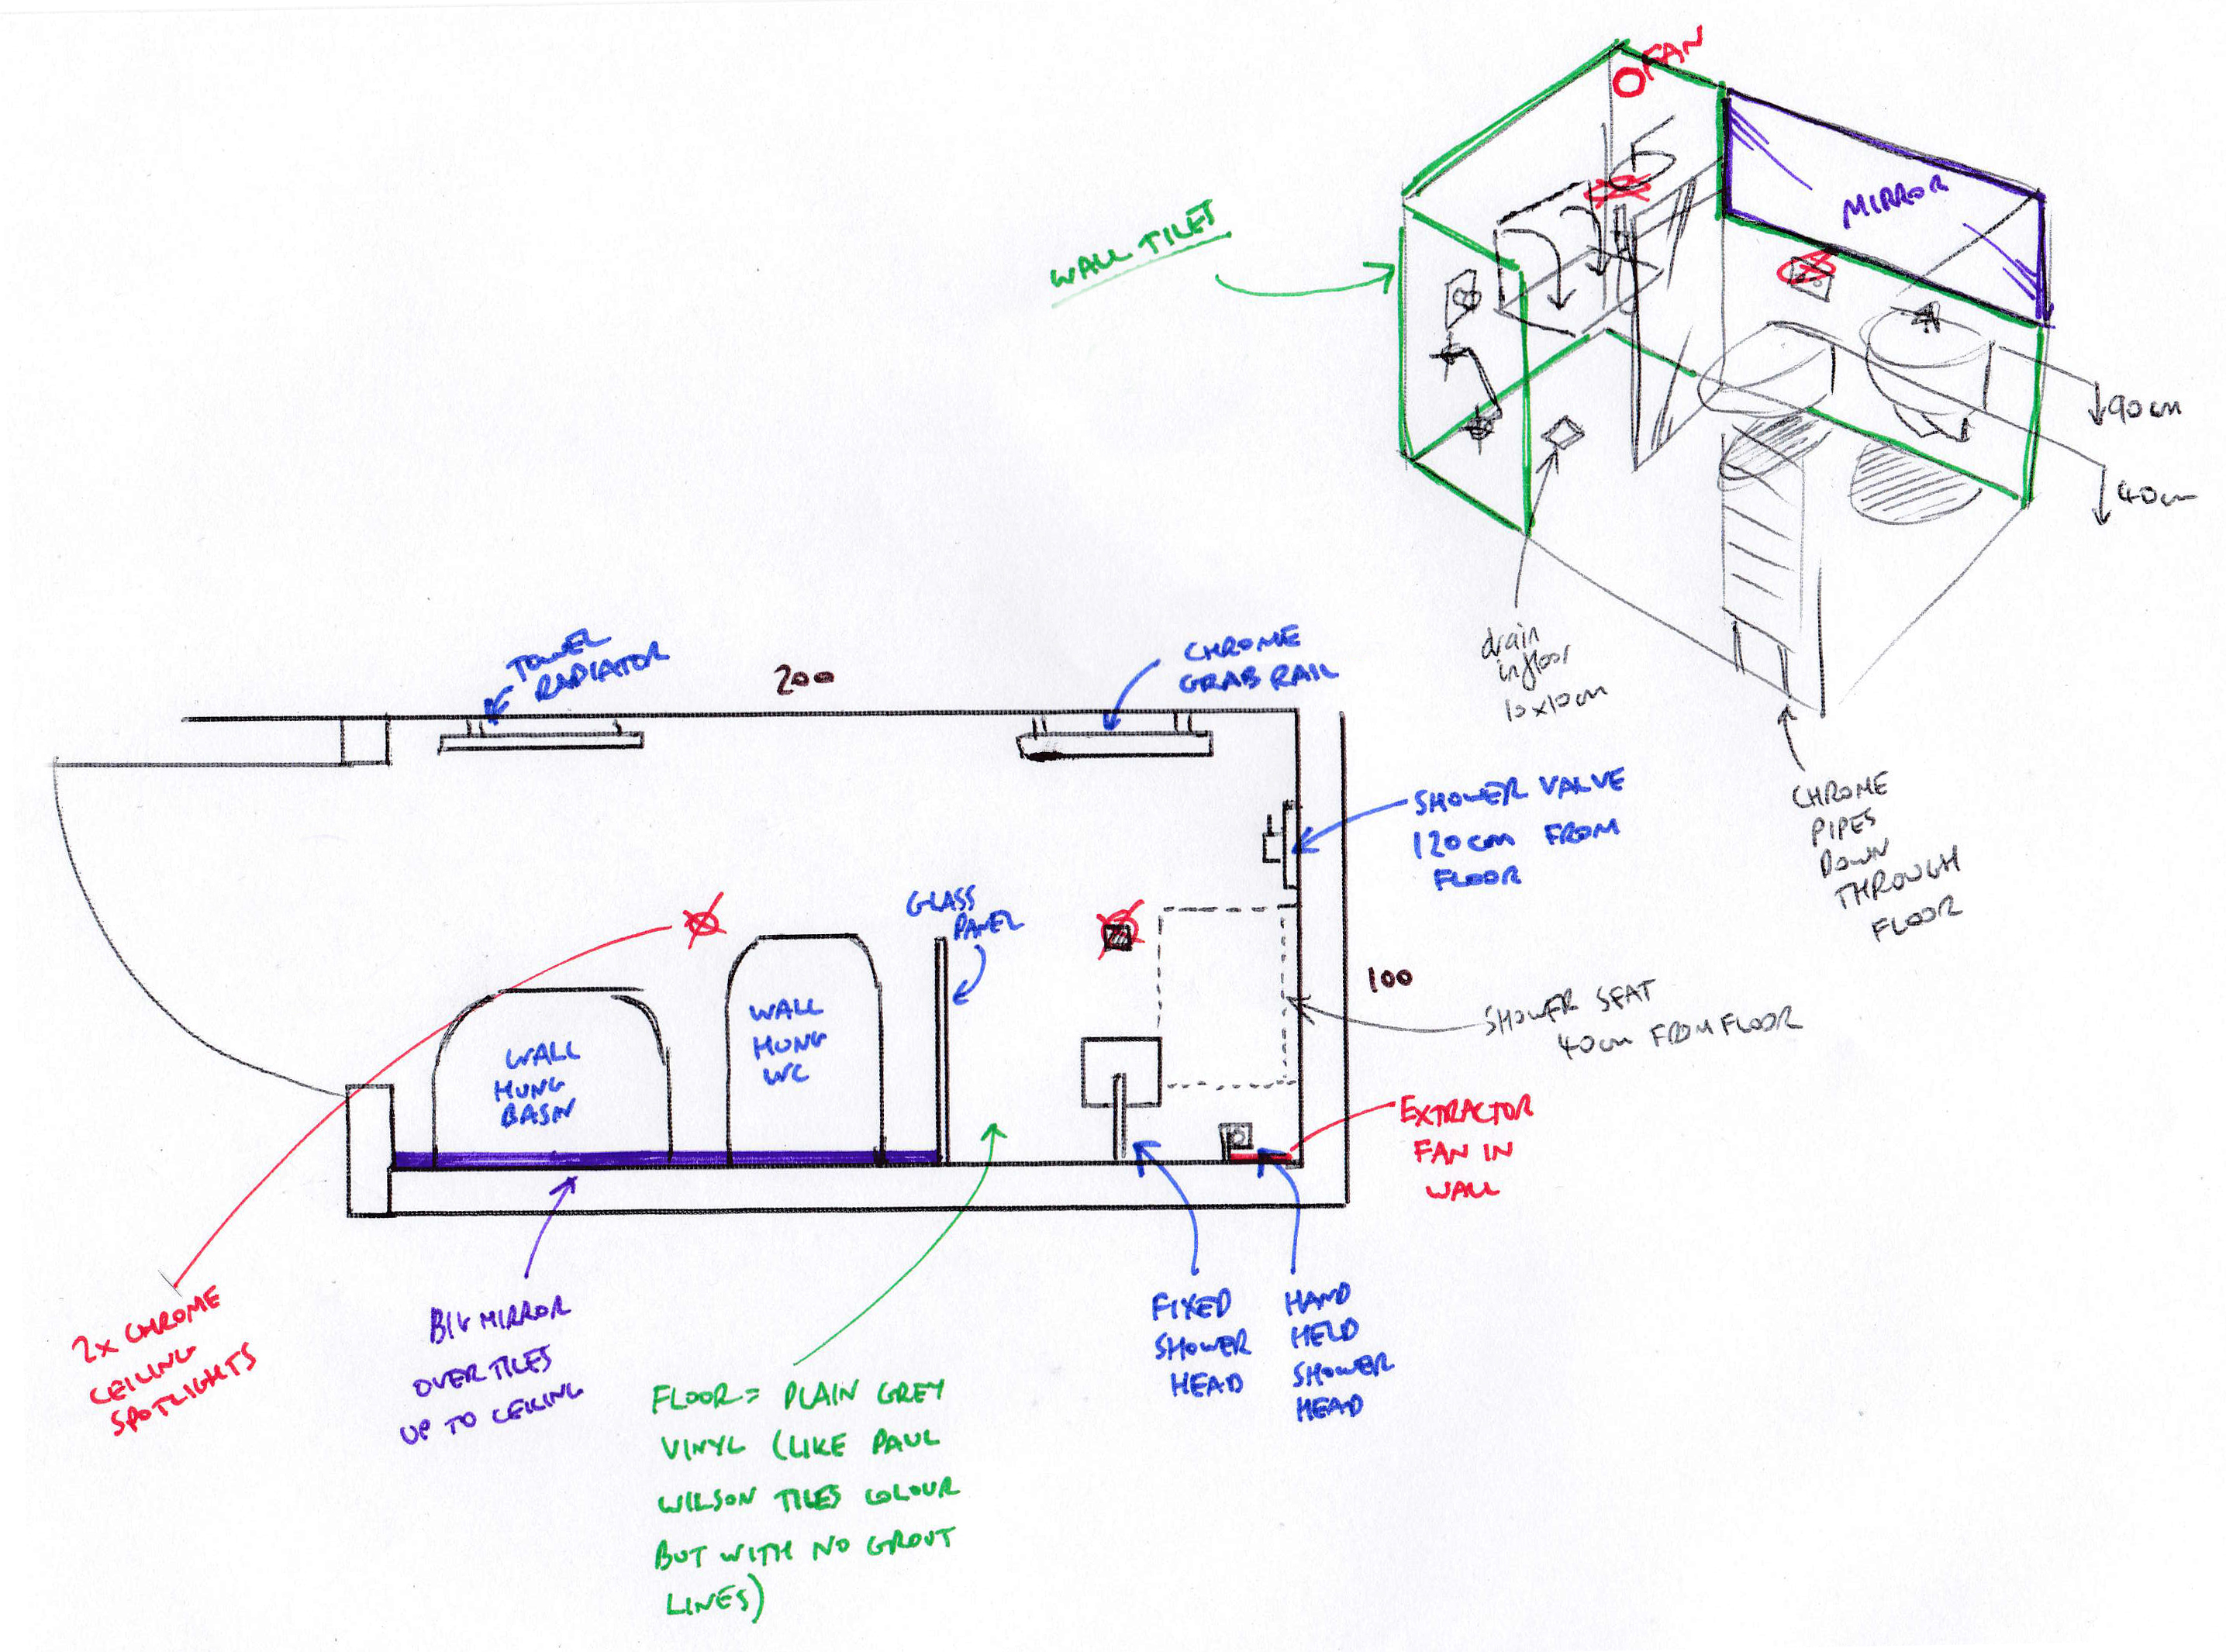 FAN
MIRROR
WALL TILET
90cm
40cm
drain
in floor
10x10cm
CHROME
PIPES
DOWN
THROUGH
FLOOR
TOWEL
RADIATOR
200
CHROME
GRAB RAIL
SHOWER VALVE
120cm FROM
FLOOR
GLASS
PANEL
WALL
HUNG
BASIN
WALL
HUNG
WC
100
SHOWER SEAT
40cm FROM FLOOR
EXTRACTOR
FAN IN
WALL
2x CHROME
CEILING
SPOTLIGHTS
BIG MIRROR
OVER TILES
UP TO CEILING
FLOOR = PLAIN GREY
VINYL (LIKE PAUL
WILSON TILES COLOUR
BUT WITH NO GROUT
LINES)
FIXED
SHOWER
HEAD
HAND
HELD
SHOWER
HEAD